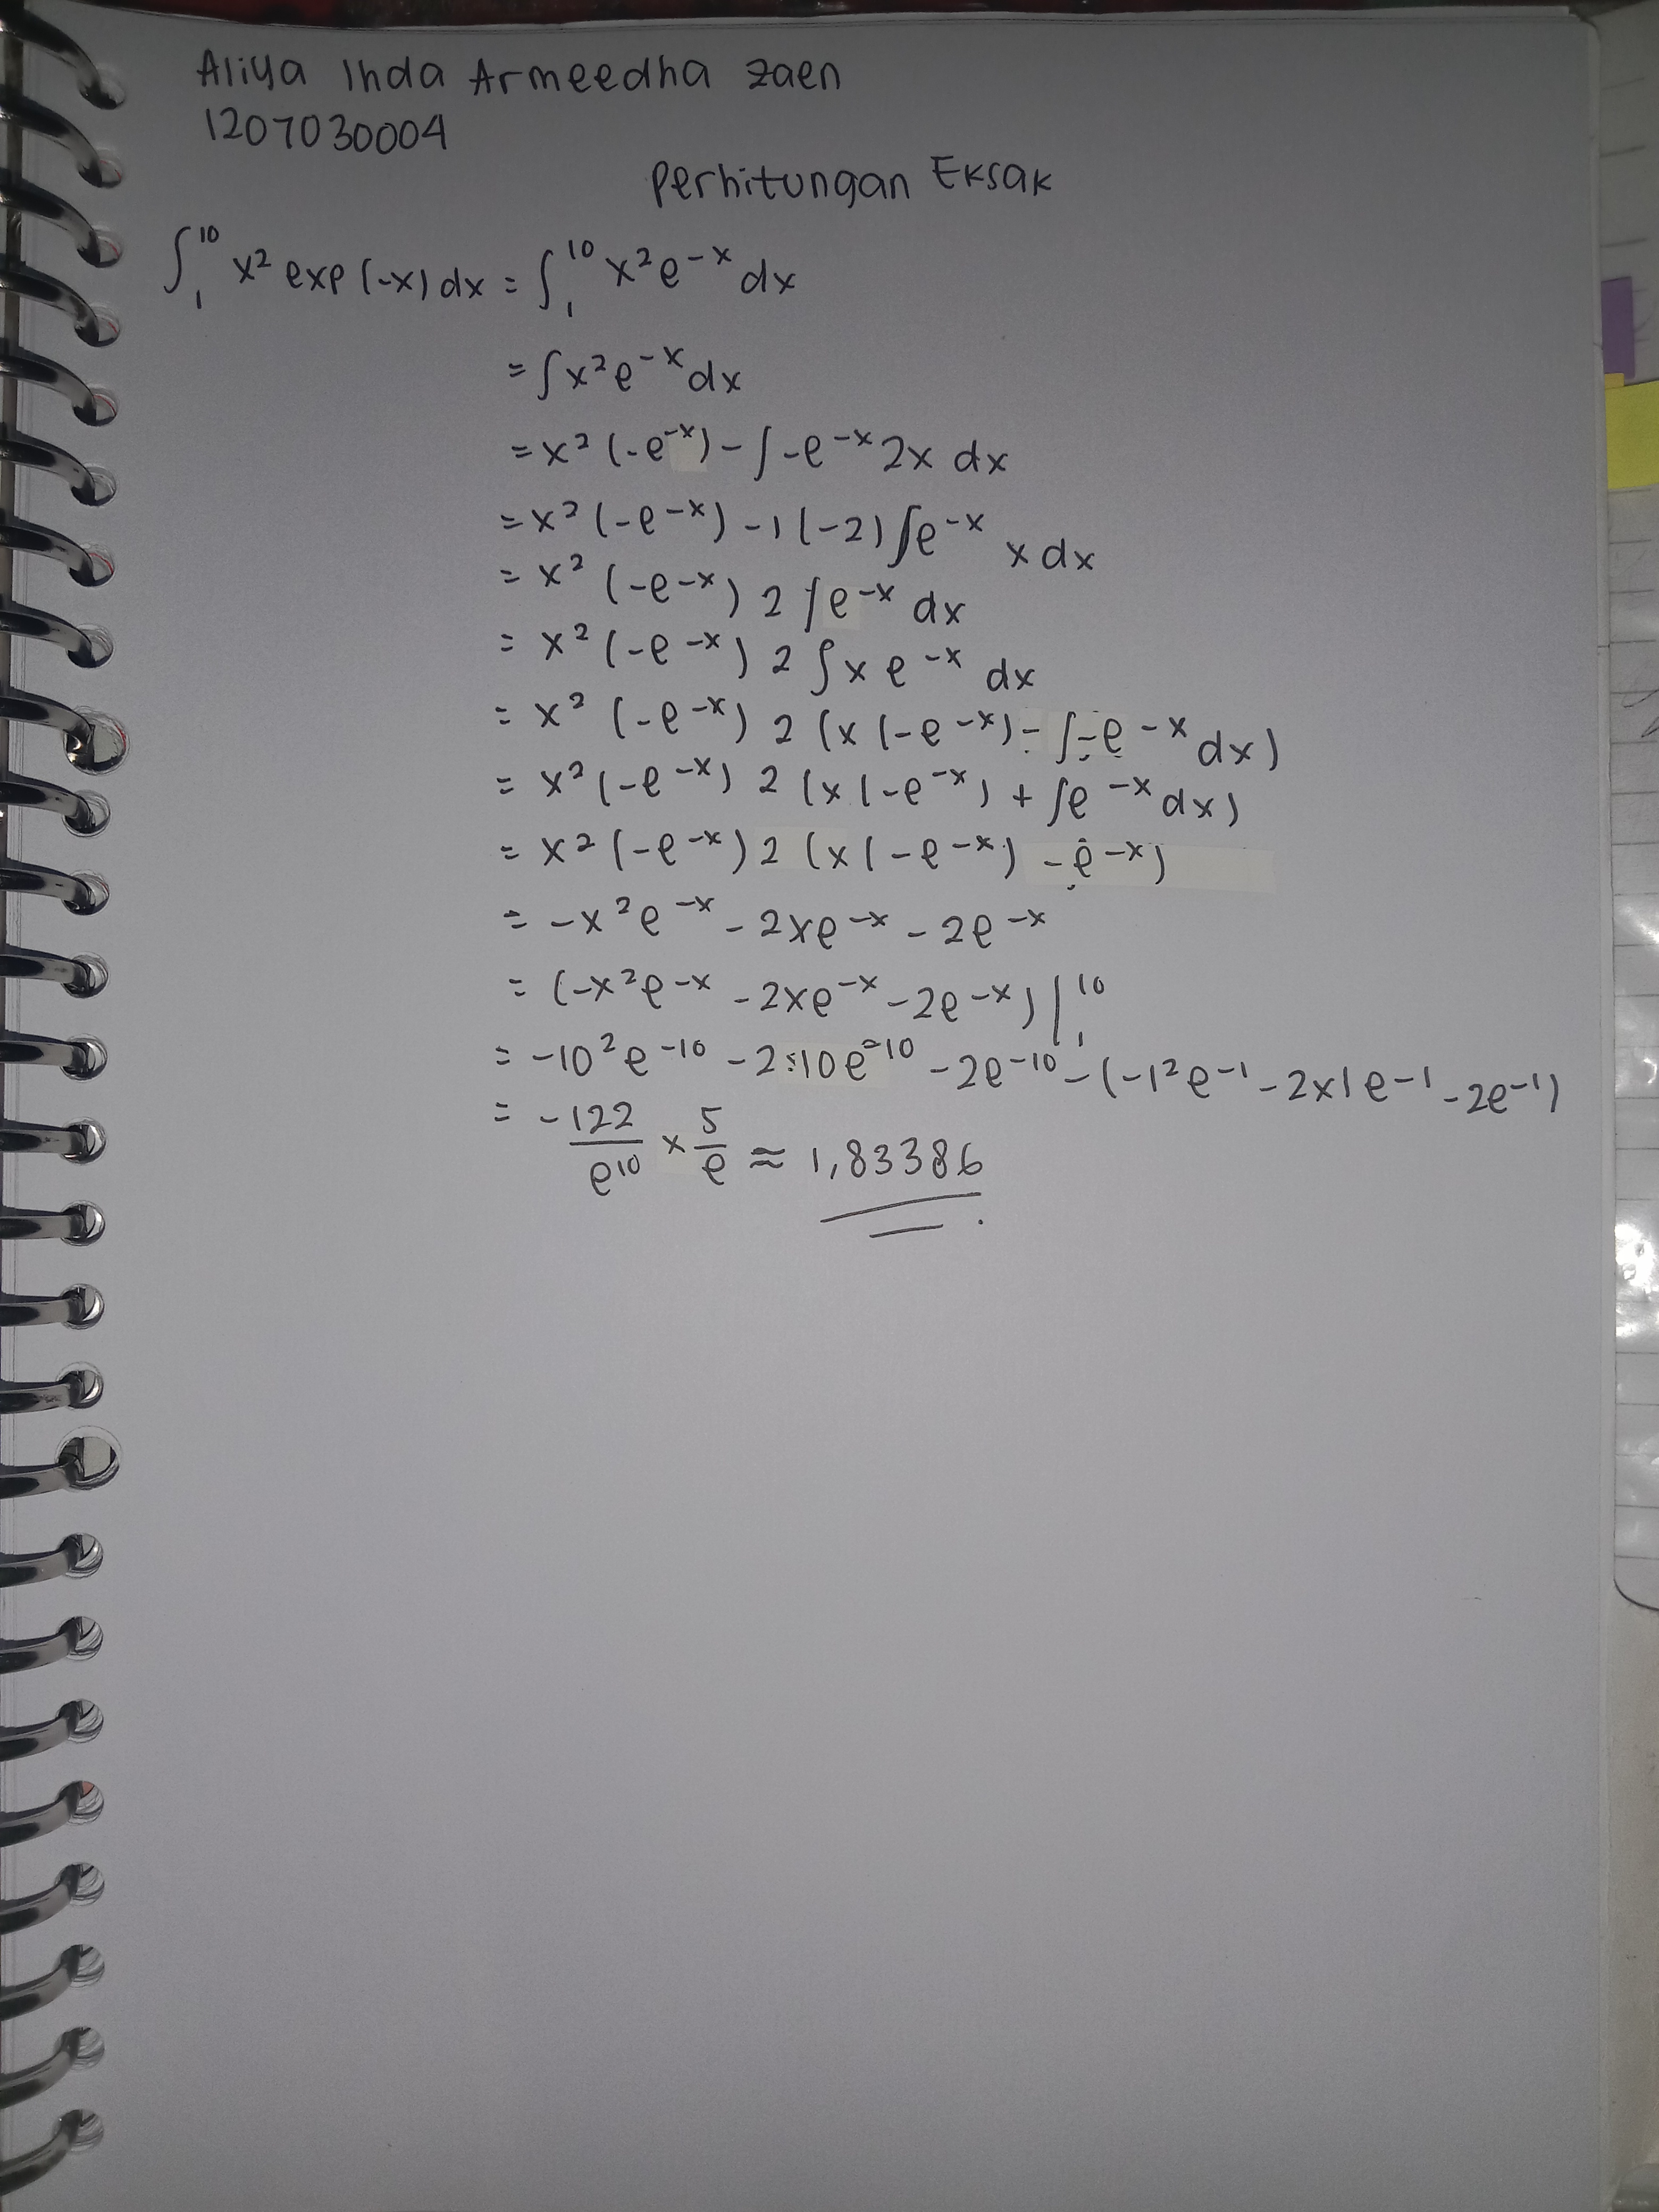 Aliya Inda Armeedha Zaen
1207030004
Perhitungan Eksak
∫₁¹⁰ x² exp(-x) dx = ∫₁¹⁰ x² e⁻ˣ dx
= ∫x² e⁻ˣ dx
= x² (-e⁻ˣ) - ∫-e⁻ˣ 2x dx
= x² (-e⁻ˣ) -1 (-2) ∫e⁻ˣ x dx
= x² (-e⁻ˣ) 2 ∫e⁻ˣ dx
= x² (-e⁻ˣ) 2 ∫x e⁻ˣ dx
= x² (-e⁻ˣ) 2 (x (-e⁻ˣ) - ∫-e⁻ˣ dx)
= x² (-e⁻ˣ) 2 (x (-e⁻ˣ) + ∫e⁻ˣ dx)
= x² (-e⁻ˣ) 2 (x (-e⁻ˣ) - e⁻ˣ)
= -x² e⁻ˣ - 2xe⁻ˣ - 2e⁻ˣ
= (-x² e⁻ˣ - 2xe⁻ˣ - 2e⁻ˣ) |₁¹⁰
= -10² e⁻¹⁰ - 2·10e⁻¹⁰ - 2e⁻¹⁰ - (-1² e⁻¹ - 2x1e⁻¹ - 2e⁻¹)
= -122/e¹⁰ x 5/e ≈ 1,83386